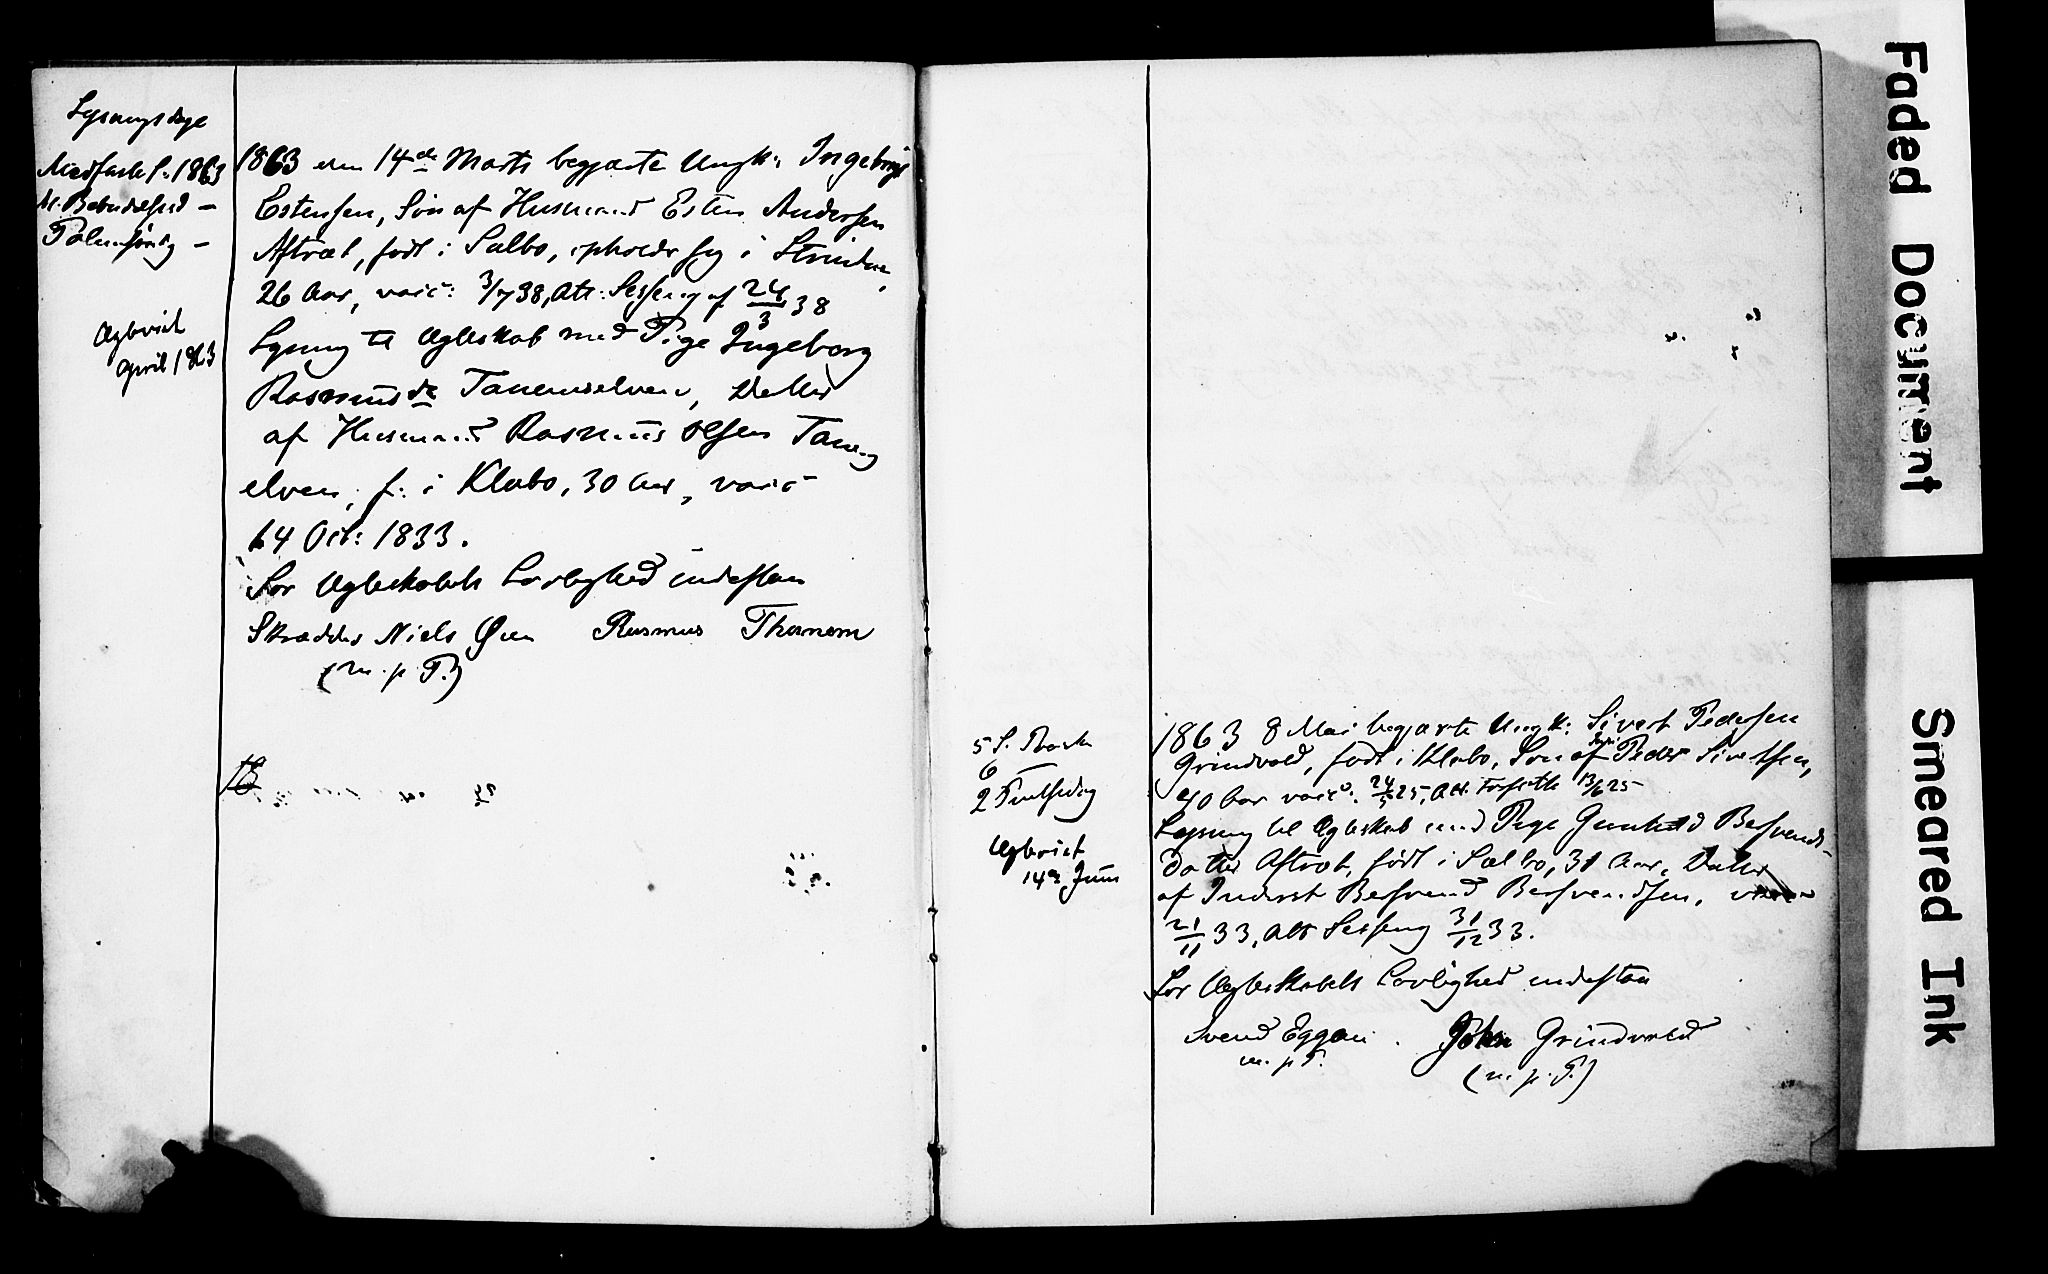 Lysningsdage
Midfaste S. 1863
M. Bebudelsesd –
Palmesøndag –
Ægteviet
April 1863
1863 den 14de Marts begjærte Ungk: Ingebrigt
Estensen, Søn af Husmand Esten Andersen
Aftræt, født i Sælbo, opholdr sig i Strinden,
26 Aar, vacc: 3/7 38, Att: Sesseng af 24/3 38
Lysning til Ægteskab med Pige Ingeborg
Rasmusdr Tanemselven, Datter
af Husmand Rasmus Olsen Tanem
elven, f: i Klæbo, 30 Aar, vacc
14 Oct: 1833.
For Ægteskabets Lovlighed indestaa
Skrædder Niels Øien Rasmus Thanem
(m. p. P.)
18
5 S. P. Paaske
6 —
2 Pintsedag
Ægteviet
14de Juni
1863 8 Mai begjærte Ungk: Sivert Pedersen
Grindvold, født i Klæbo, Søn af Peder Sivertsen,
40 Aar vacc: 24/5 25, Att. Forseth 13/6 25
Lysning til Ægteskab med Pige Gunhild Bersvends-
Datter Aftræt, født i Sælbo, 31 Aar, Datter
af Inderst Bersvend Bersvendsen,
21/11 33, Att Sesseng 31/12 33.
For Ægteskabets Lovlighed indestaa
Svend Eggen. John Grindvold
m. p. P. (m. p. P.)
Faded Document
Smeared Ink